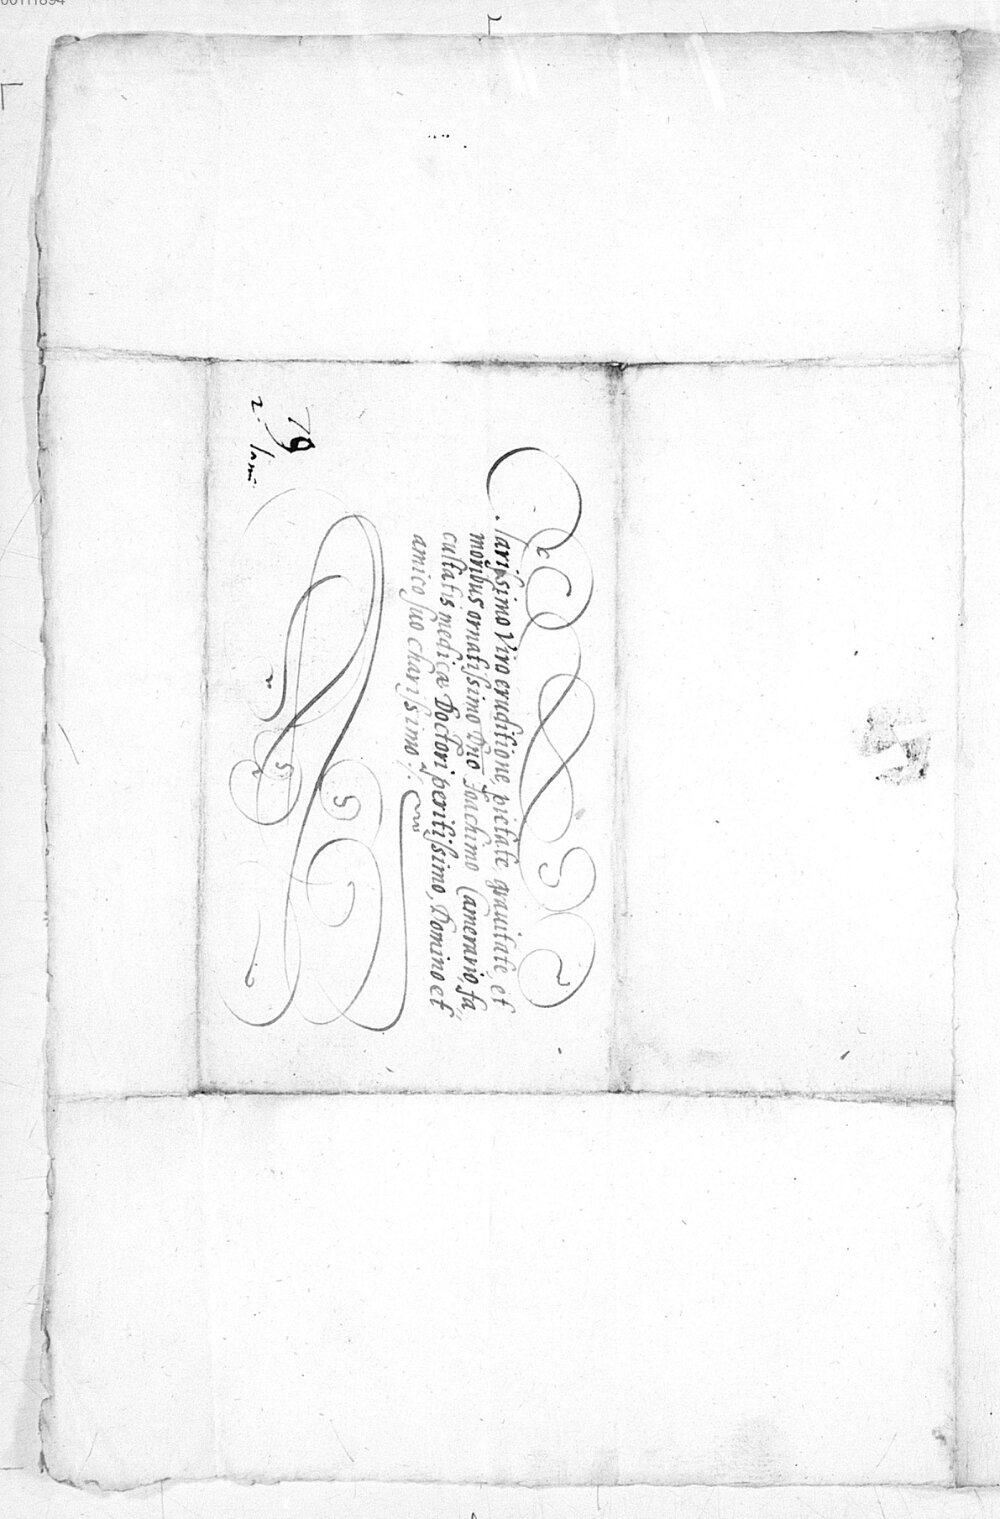 Clarissimo Viro eruditione, pietate gravitate, et
moribus ornatissimo Dno Joachimo Camerario, fa,
cultatis medicæ Doctori peritissimo, Domino et
amico suo charissimo :/.
79
2.